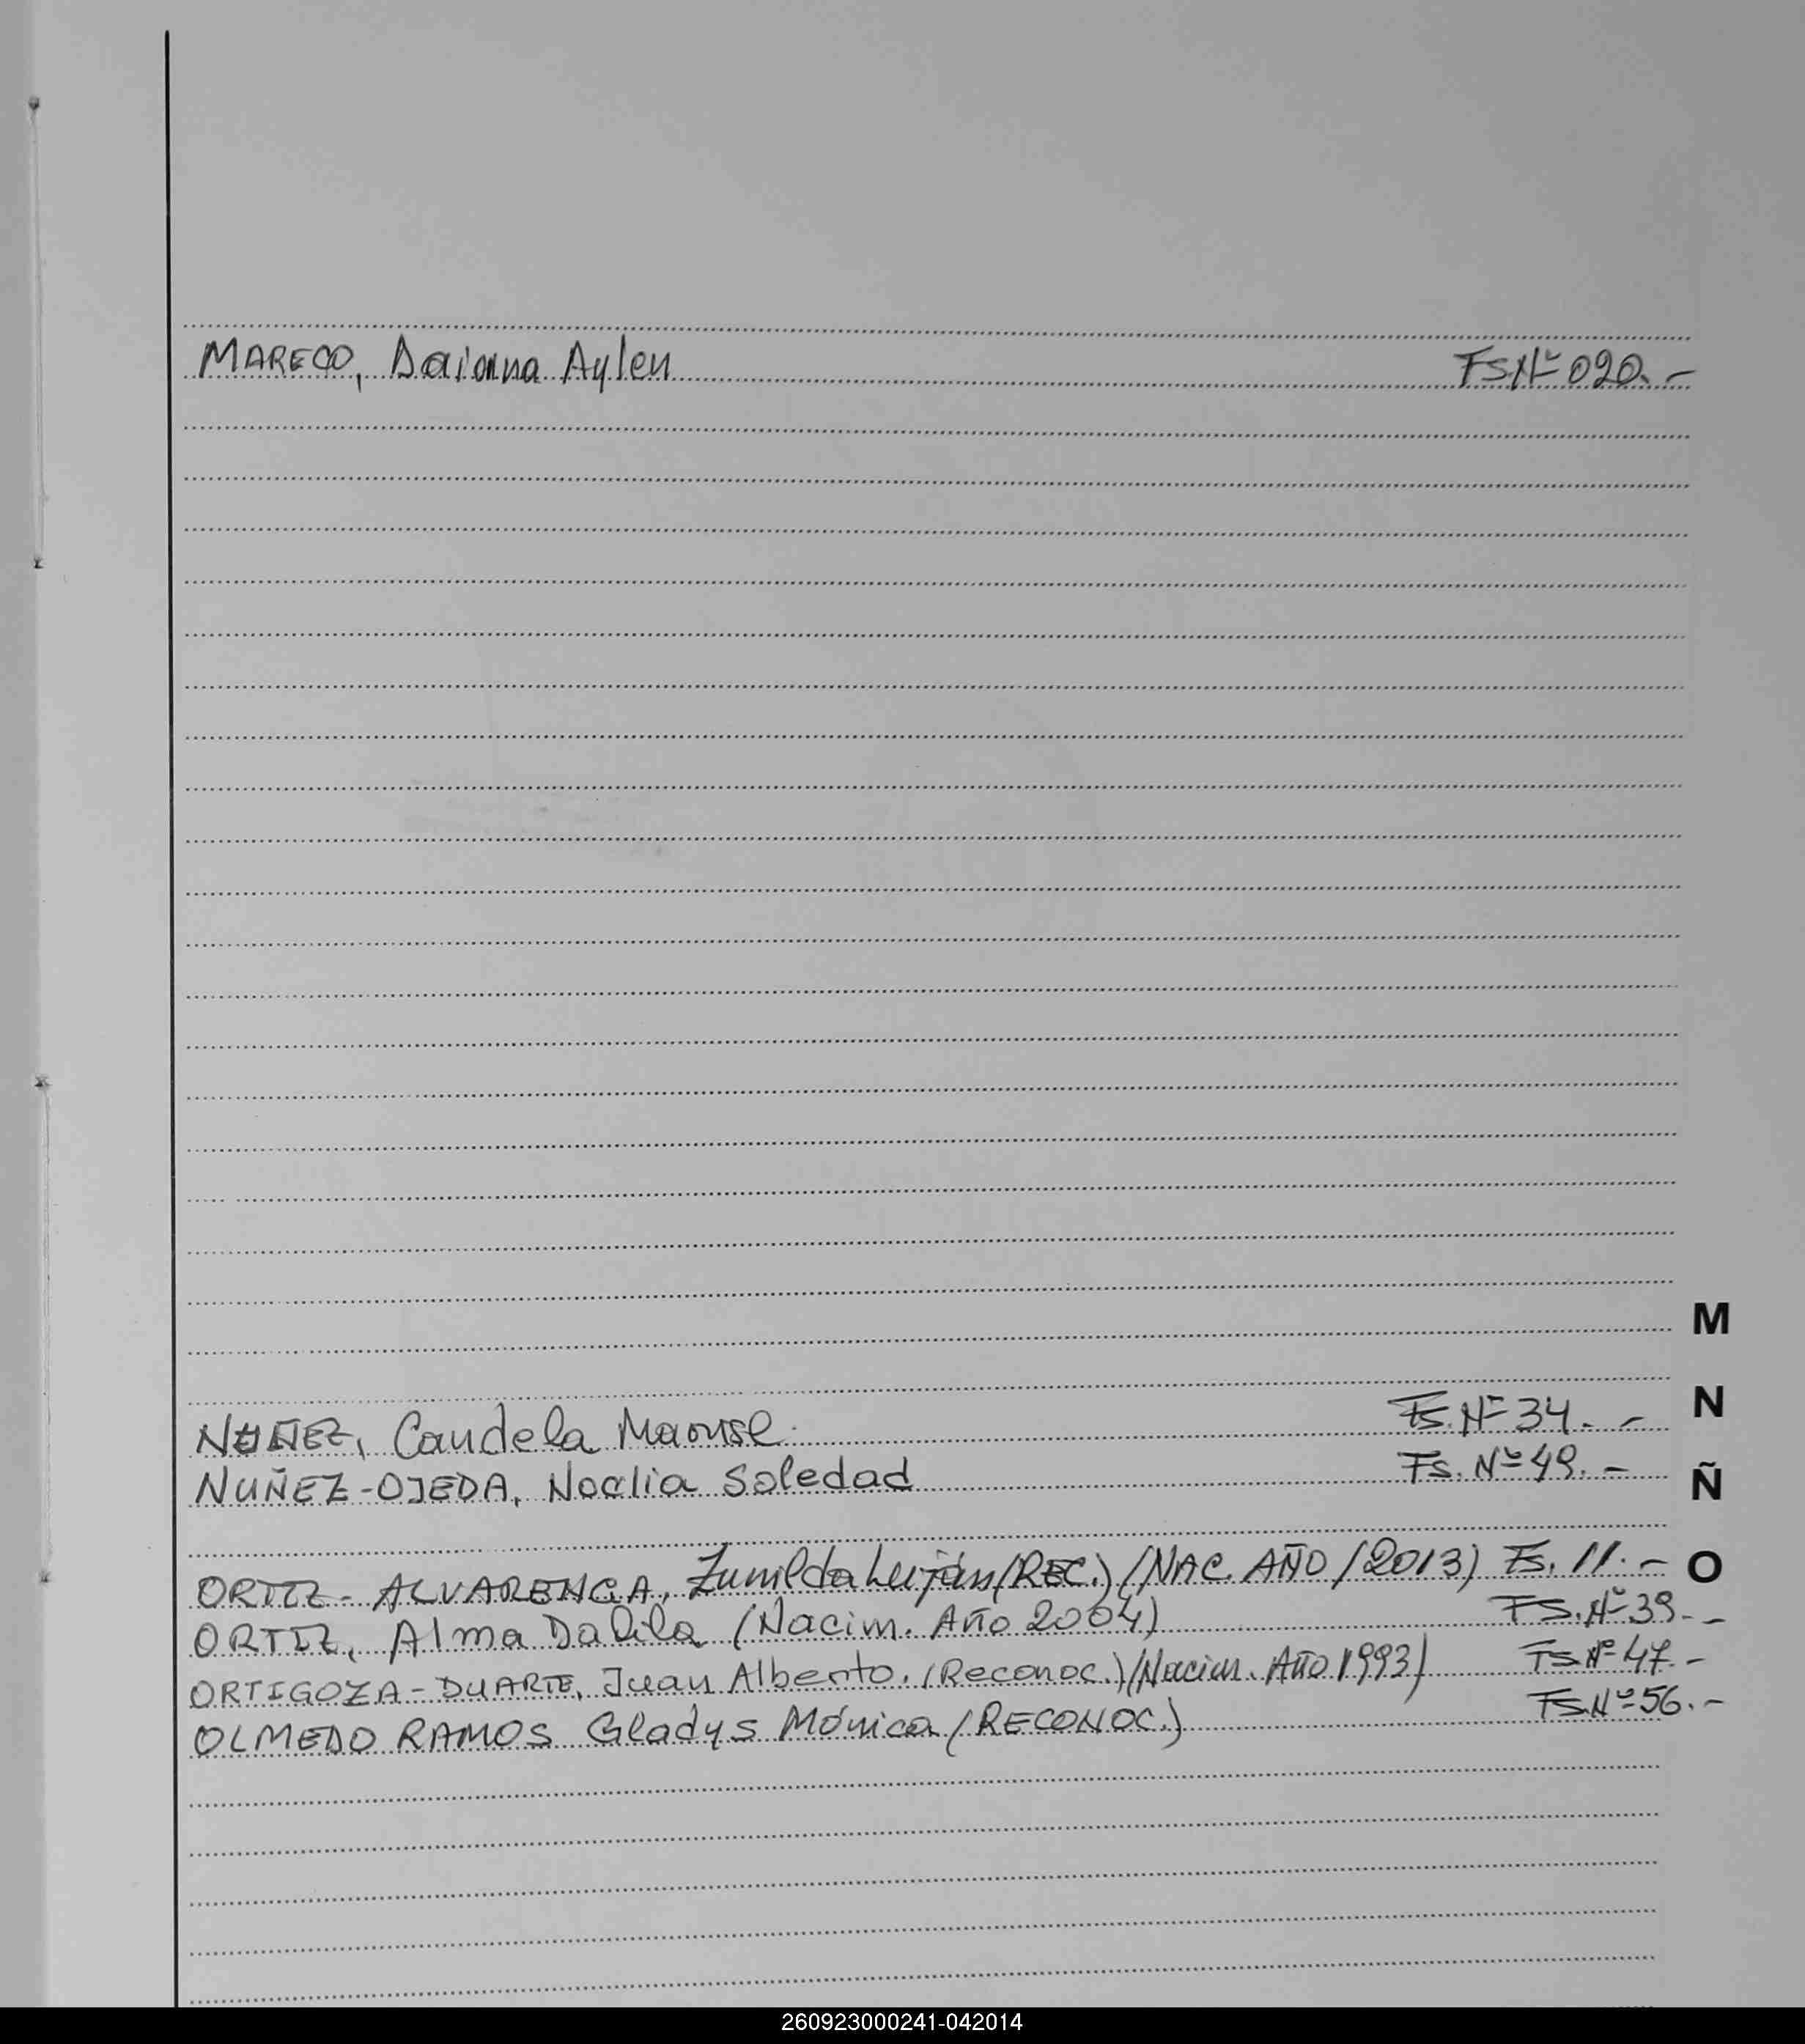 MARECO, Daiana Aylen FS Nº 020.-
M
NUÑEZ, Candela Fs. Nº 34.-
N
NUÑEZ-OJEDA, Noelia Soledad Fs. Nº 49.-
Ñ
ORTIZ-ALVARENGA, Zunilda (REC.) (NAC. AÑO/2013) Fs. 11.-
O
ORTIZ, Alma Dalila (Nacim. Año 2004) FS. Nº 39.-
ORTIGOZA-DUARTE, Juan Alberto. (Reconoc.) (Nacim. Año 1993) FS Nº 47.-
OLMEDO RAMOS Gladys Mónica (RECONOC.) FS Nº 56.-
260923000241-042014